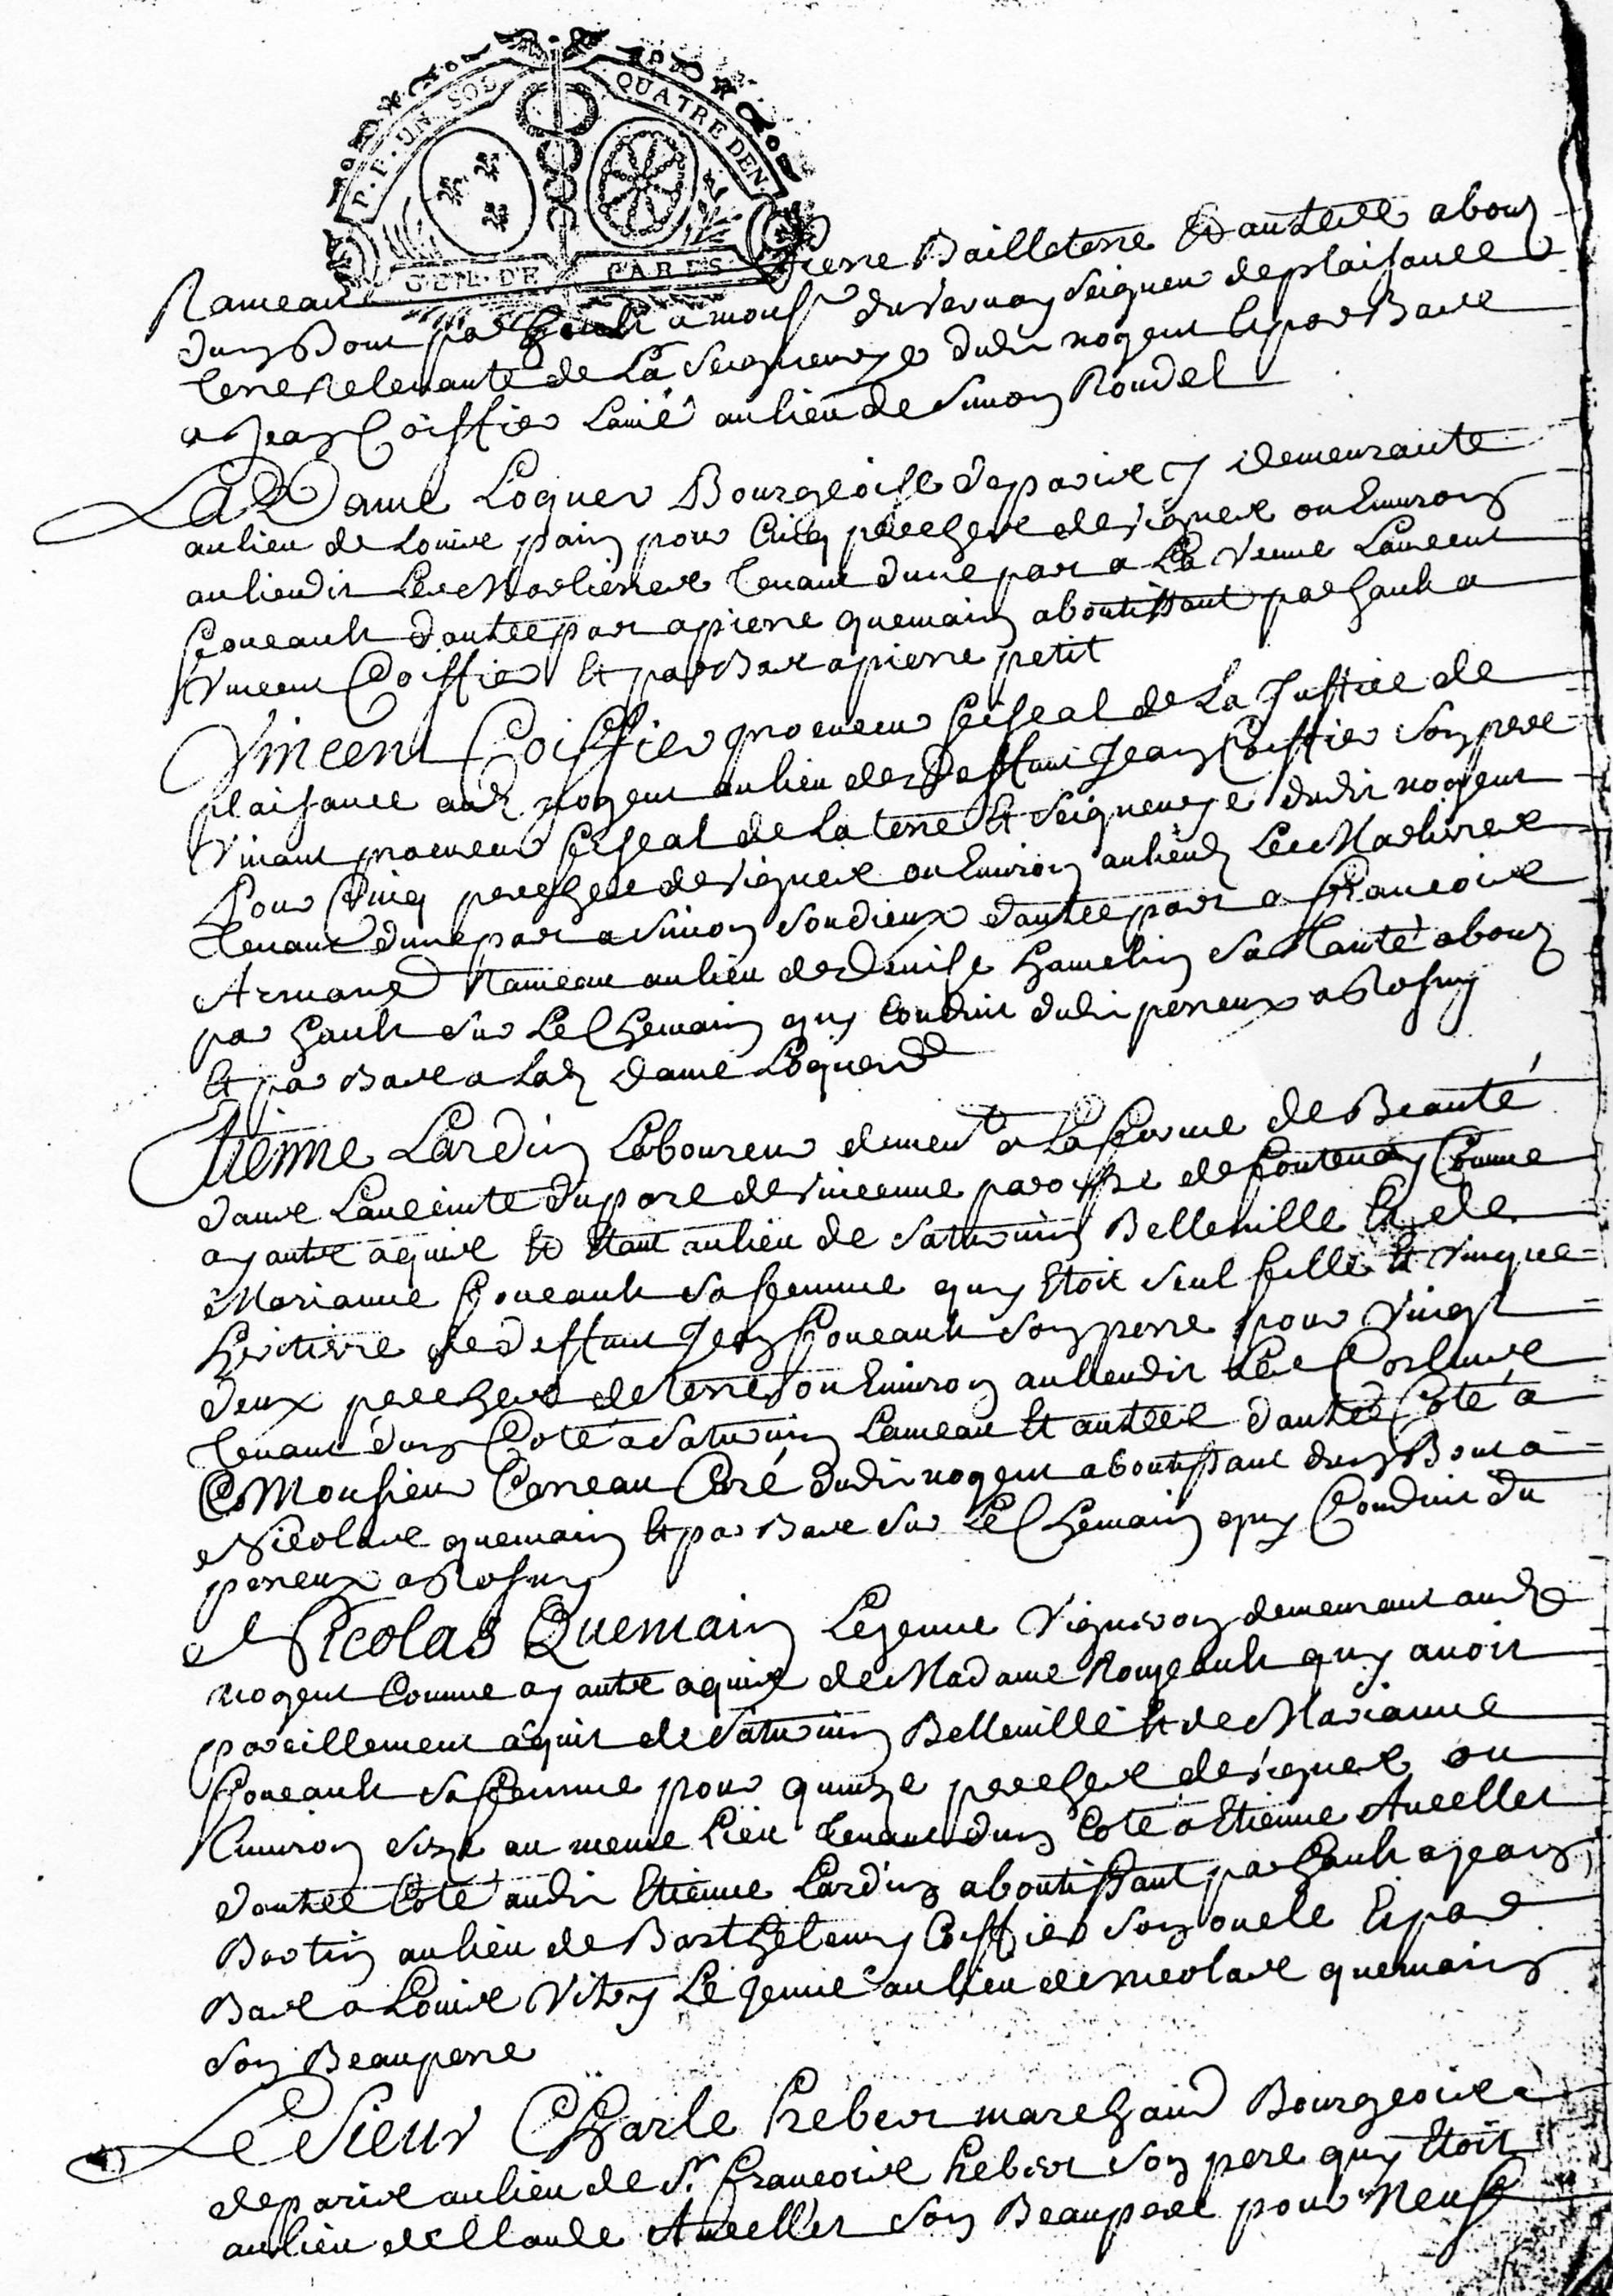 P.F. UN SOL QUATRE DEN.
GEN. DE PARIS
Rameau Pierre Bailleterre Et autre abou
dun Bout par hault a mons.r du Vernay Seigneur de plaisance
terre Relevante de La Seigneurye dudit nogent Et par Bas
a Jean Coiffier Lainé au lieu de Simon Roudel
La Dame Loquer Bourgeoise de paris y demeurante
au lieu de Louis pain pour Cinq perches de vignes ou Environ
au lieudit Les Marlieres tenant dune part a La Veuve Laurent
foucault dautre part a pierre quemain aboutissant par hault a
Vincent Coiffier Et par Bas a pierre petit
Vincent Coiffier procureur fiscal de La Justice de
plaisance aud nogent au lieu de Deffunt Jean Coiffier son pere
Vivant procureur fiscal de La terre Et Seigneurye dudit nogent
Pour Cinq perches de vignes ou Environ au lieud Les Marlieres
tenant dune part a Simon Soudieux dautre part a francois
Armand Rameau au lieu de Denise hamelin sa tante abou
par hault sur Le Chemain quy Conduit dudit perreux a Rosny
Et par Bas a Lad Dame Loquer
Etienne Lardin Laboureur demeur.t a La ferme de Beauté
dans Lanceinte du parc de Vincenne paroisse de fontenay Comme
ayante aquis Et Etant au lieu de Saturnin Belleville Et de
Marianne foucault sa femme quy Etoit seul fille Et Unique
heritiere de deffunt Jean foucault son perre pour Vingt
deux perches de terre ou Environ au lieudit Les Corluis
tenant dun Coté a Saturnin Lameau Et autres dautre Coté a
Monsieur Carreau Curé dudit nogent aboutissant dun Bout a
Nicolas quemain Et par Bas sur Le Chemain quy Conduit du
perreux a Rosny
Nicolas Quemain Lejeune Vigneron demeurant aud
nogent Comme ayante aquis de Madame Rougeault quy avoit
pareillement aquis de Saturnin Belleville Et de Marianne
foucault sa femme pour quinze perches de vignes ou
Environ size au meme Lieu tenant dun Coté a Etienne Ancellet
dautre Coté audit Etienne Lardin aboutissant par hault a Jean
Bartin au lieu de Barthelemy Coiffier son oncle Et par
Bas a Louis Vitry Le Jeune au lieu de nicolas quemain
son Beauperre
Le Sieur Charle heber marchand Bourgeois
de paris au lieu de S.r francois heber son pere quy Etoit
au lieu de Claude Ancellet son Beaupere pour Neuf